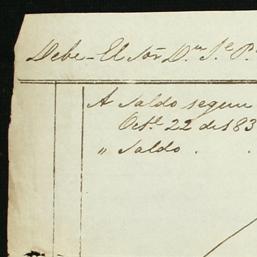 Debe - El Sōr Dⁿ Jᵉ P.
A Saldo segun
Octᵉ 22 de 183
" Saldo . .